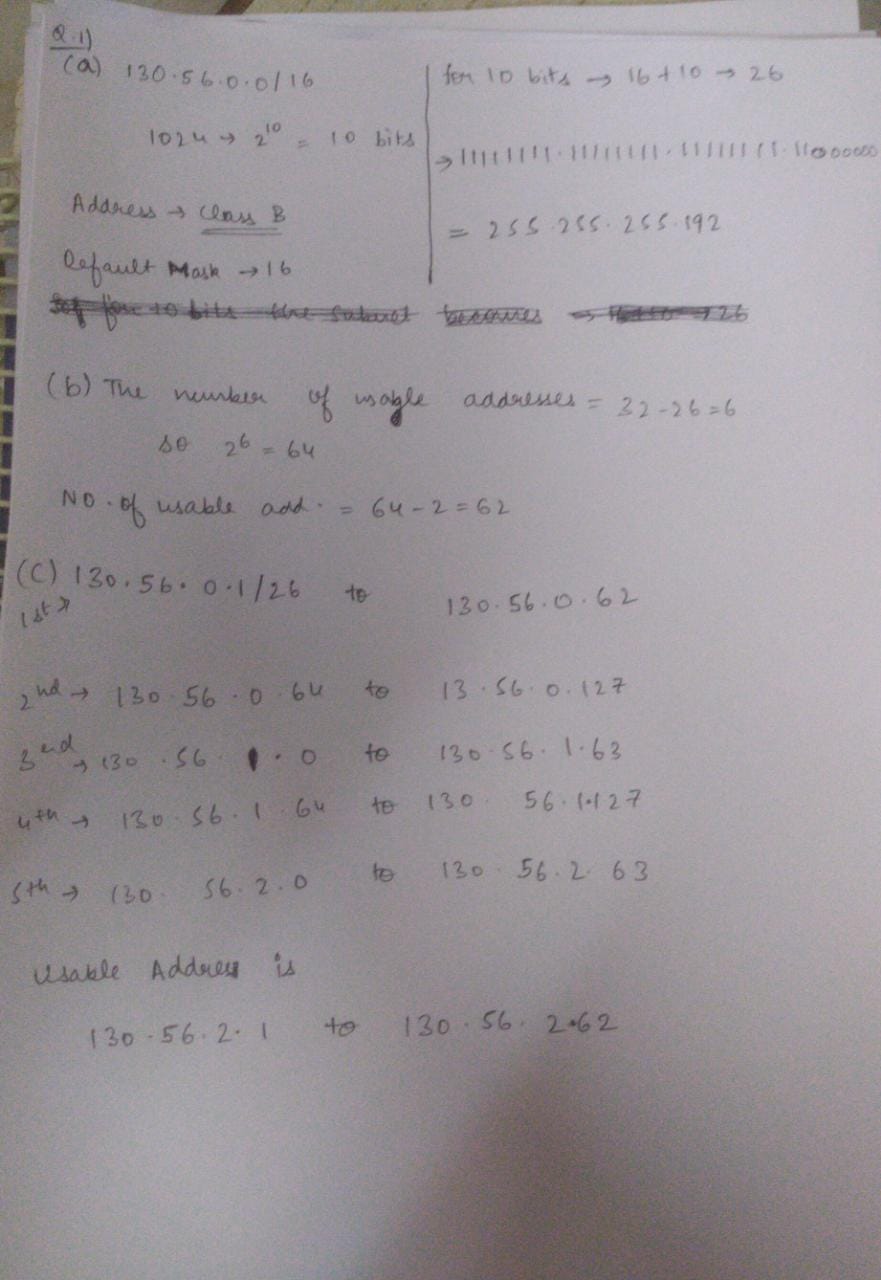 Q.1)
(a) 130.56.0.0/16
1024 → 2^10 = 10 bits
Address → Class B
Default Mask → 16
for 10 bits → 16 + 10 → 26
→ 11111111.11111111.11111111.11000000
= 255.255.255.192
for 10 bits the subnet becomes → 16+10 → 26
(b) The number of usagle addresses = 32-26=6
so 2^6 = 64
NO. of usable add. = 64-2=62
(C) 130.56.0.1/26 to 130.56.0.62
1st →
2nd → 130.56.0.64 to 13.56.0.127
3rd → 130.56.1.0 to 130.56.1.63
4th → 130.56.1.64 to 130.56.1.127
5th → 130.56.2.0 to 130.56.2.63
Usable Address is
130.56.2.1 to 130.56.2.62